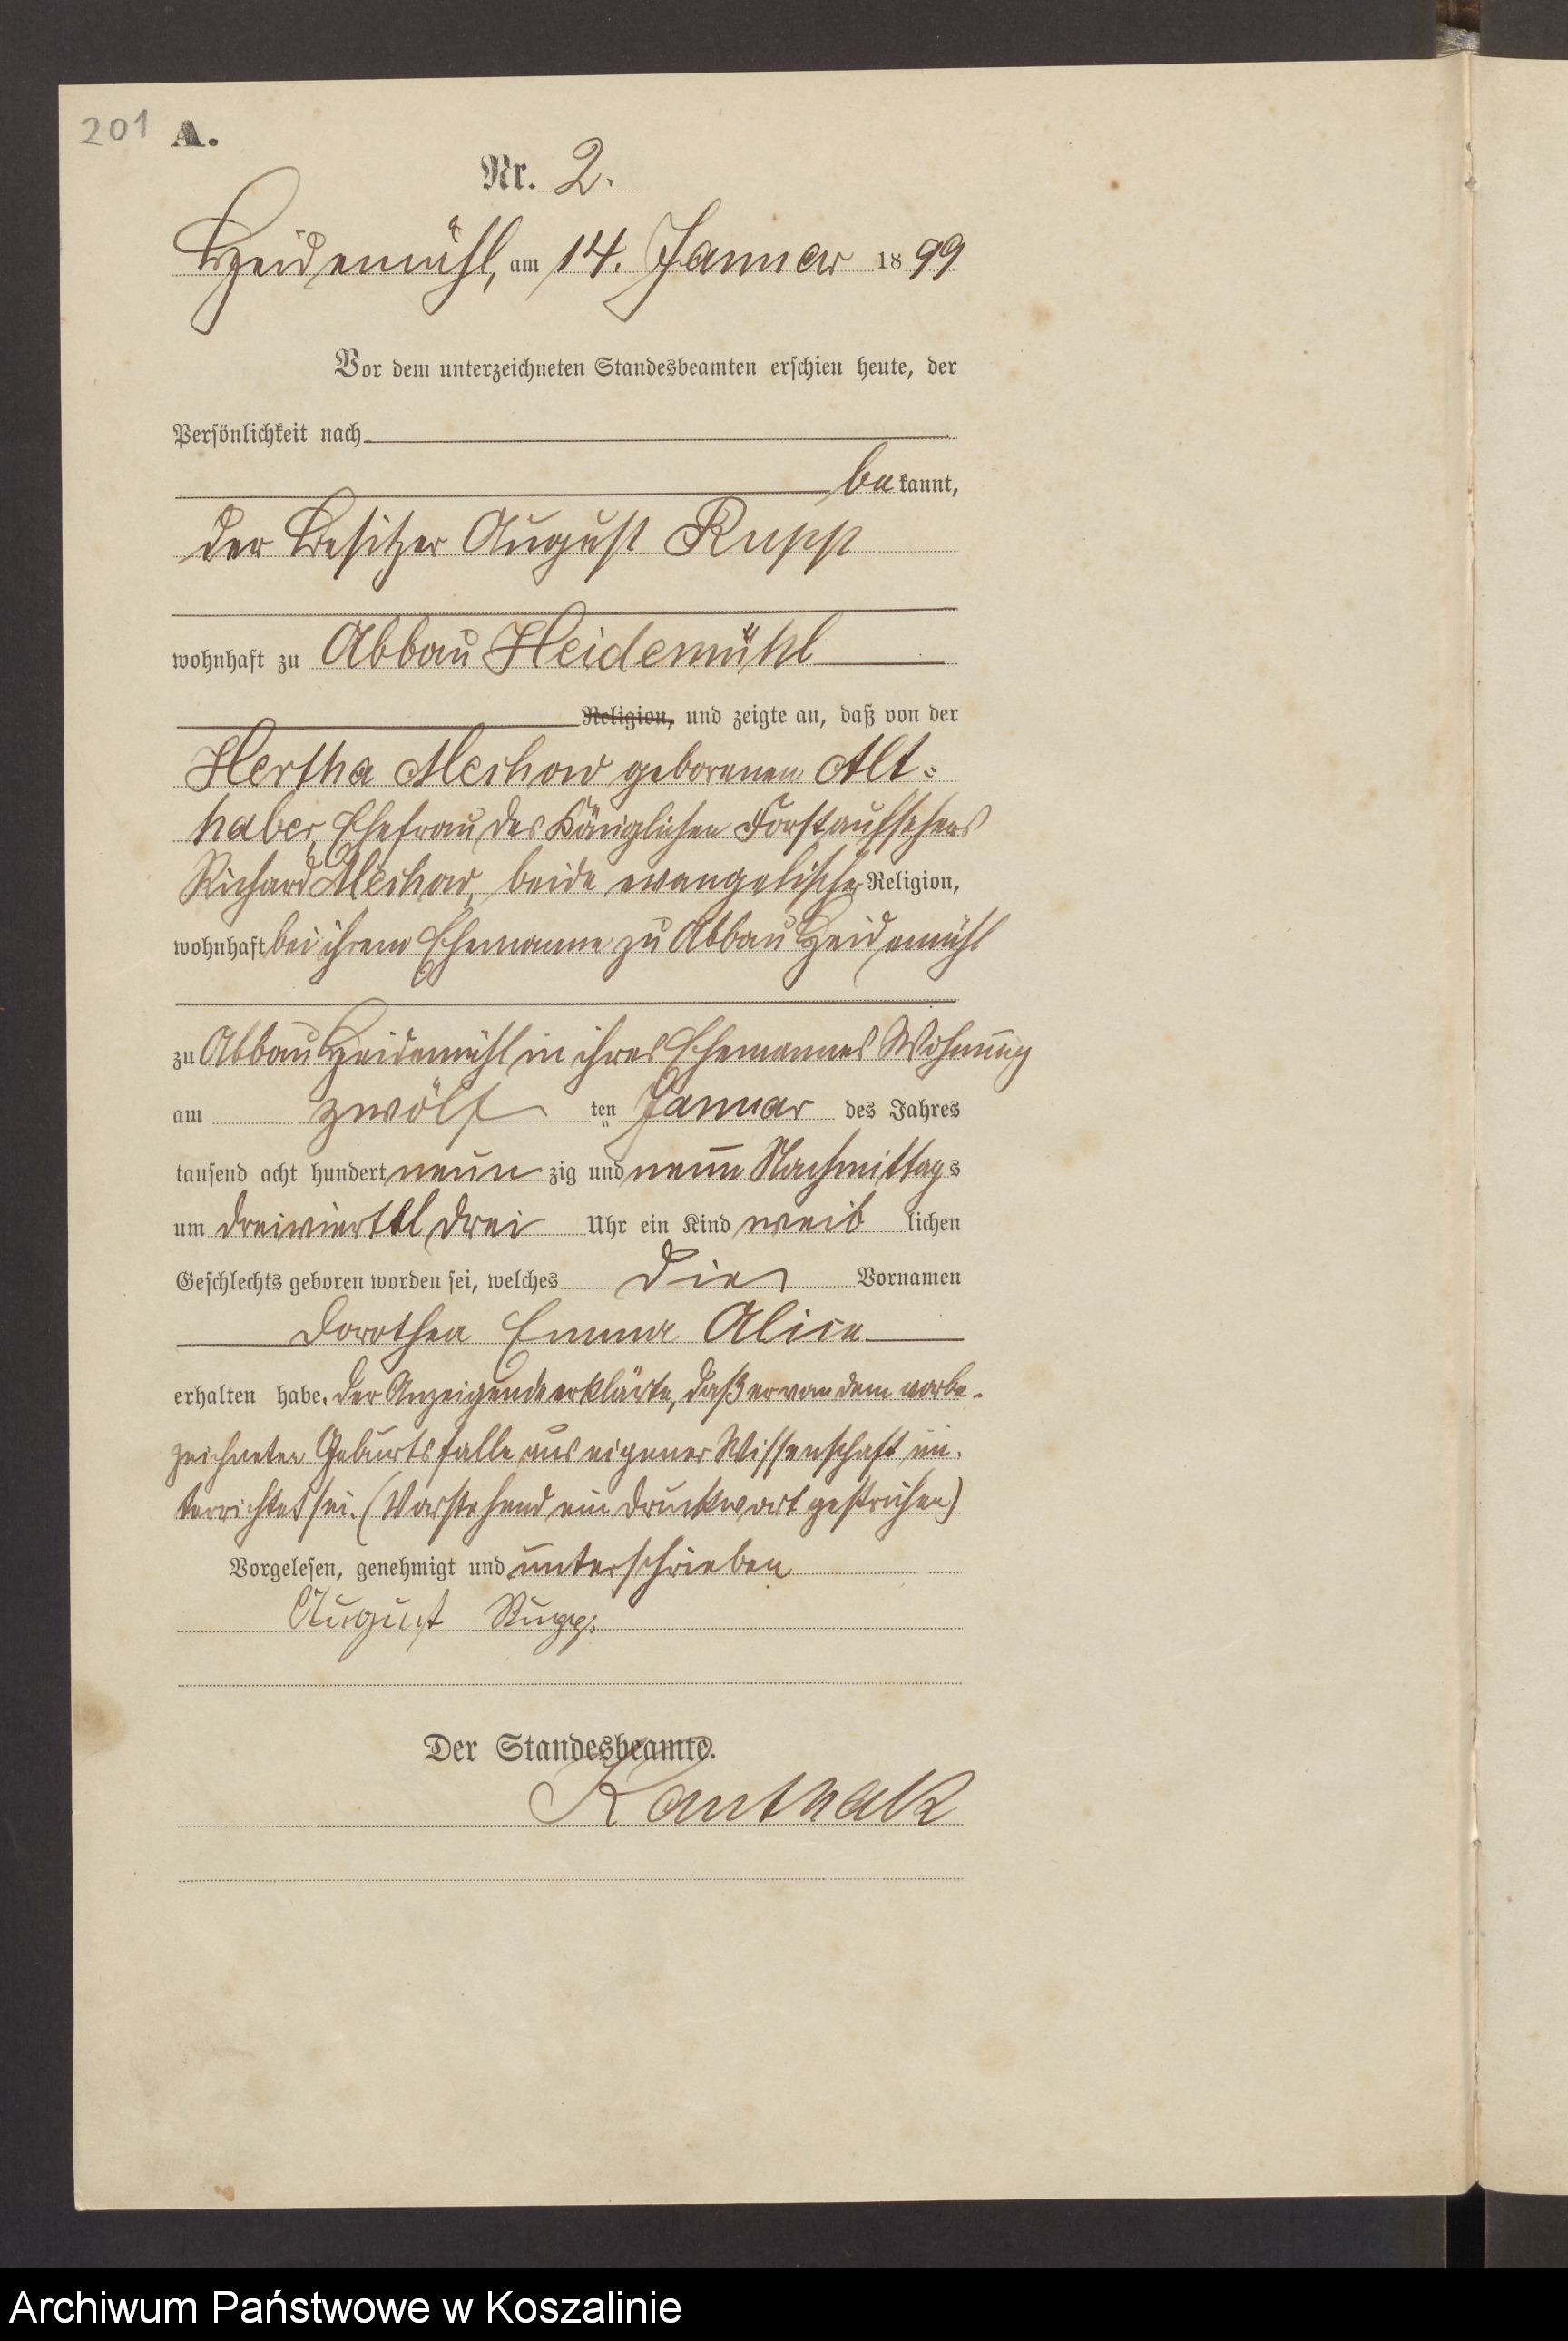 201 A.
Nr. 2.
Heidemühl, am 14. Januar 1899
Vor dem unterzeichneten Standesbeamten erschien heute, der
Persönlichkeit nach
bekannt,
der Besitzer August Rupp
wohnhaft zu Abbau Heidemühl
Religion, und zeigte an, daß von der
Hertha Mechow geborenen Alt-
haber, Ehefrau des Königlichen Forstaufsehers
Richard Mechow, beide evangelischer Religion,
wohnhaft bei ihrem Ehemanne zu Abbau Heidemühl
zu Abbau Heidemühl in ihres Ehemannes Wohnung
am zwölf ten Januar des Jahres
tausend acht hundert neun zig und neun Nachmittags
um dreiviertel drei Uhr ein Kind weib lichen
Geschlechts geboren worden sei, welches die Vornamen
Dorothea Emma Alice
erhalten habe. Der Anzeigende erklärte, daß er von dem vorbe-
zeichneten Geburtsfalle aus eigener Wissenschaft un-
terrichtet sei. (Vorstehend ein Druckwort gestrichen)
Vorgelesen, genehmigt und unterschrieben
August Rupp.
Der Standesbeamte.
Kanthak
Archiwum Państwowe w Koszalinie